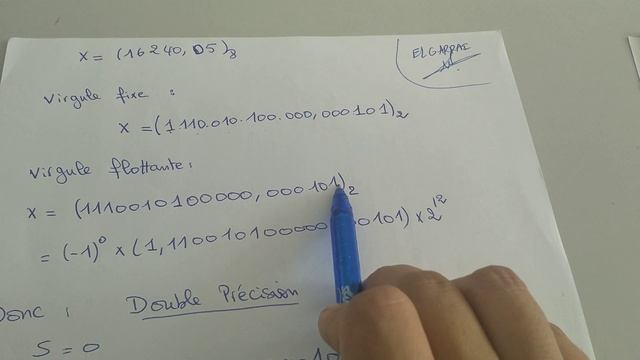 x = (16240,05)₈
ELGARRAI
Virgule fixe :
x = (1.110.010.100.000,000101)₂
Virgule flottante :
x = (1110010100000,000101)₂
= (-1)⁰ x (1,110010100000 00101) x 2¹²
Donc : Double Précision
S = 0